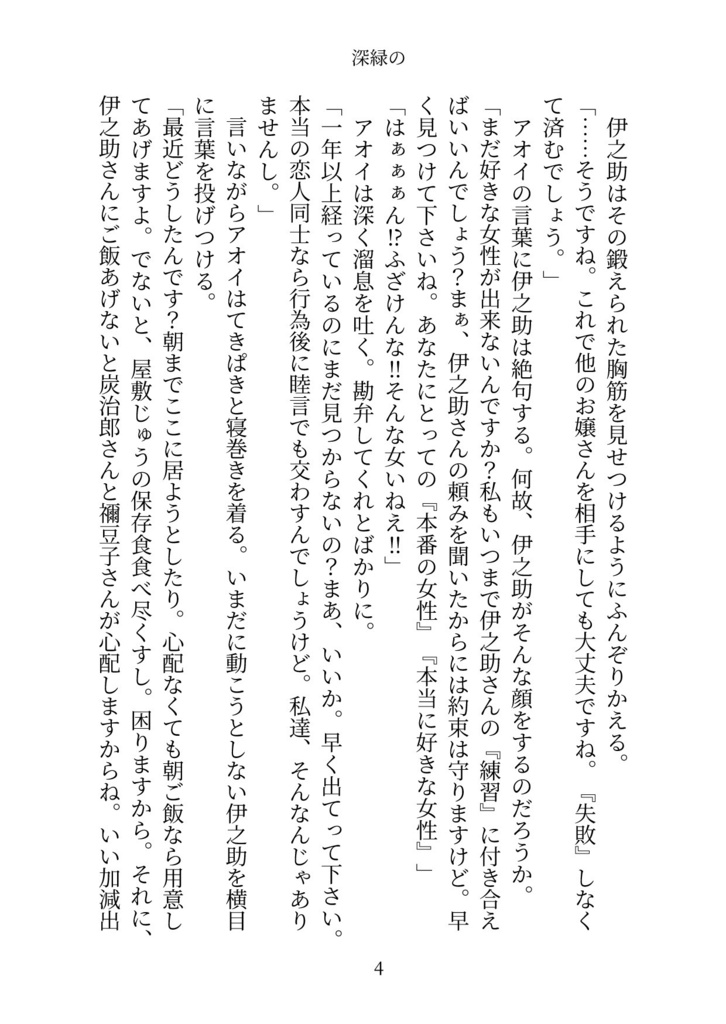 深緑の
伊之助はその鍛えられた胸筋を見せつけるようにふんぞりかえる。
「……そうですね。これで他のお嬢さんを相手にしても大丈夫ですね。『失敗』しなく
て済むでしょう。」
アオイの言葉に伊之助は絶句する。何故、伊之助がそんな顔をするのだろうか。
「まだ好きな女性が出来ないんですか？私もいつまで伊之助さんの『練習』に付き合え
ばいいんでしょう？まぁ、伊之助さんの頼みを聞いたからには約束は守りますけど。早
く見つけて下さいね。あなたにとっての『本番の女性』『本当に好きな女性』」
「はぁぁぁん⁉ふざけんな‼そんな女いねえ‼」
アオイは深く溜息を吐く。勘弁してくれとばかりに。
「一年以上経っているのにまだ見つからないの？まあ、いいか。早く出てって下さい。
本当の恋人同士なら行為後に睦言でも交わすんでしょうけど。私達、そんなんじゃあり
ませんし。」
言いながらアオイはてきぱきと寝巻きを着る。いまだに動こうとしない伊之助を横目
に言葉を投げつける。
「最近どうしたんです？朝までここに居ようとしたり。心配なくても朝ご飯なら用意し
てあげますよ。でないと、屋敷じゅうの保存食食べ尽くすし。困りますから。それに、
伊之助さんにご飯あげないと炭治郎さんと禰豆子さんが心配しますからね。いい加減出
4